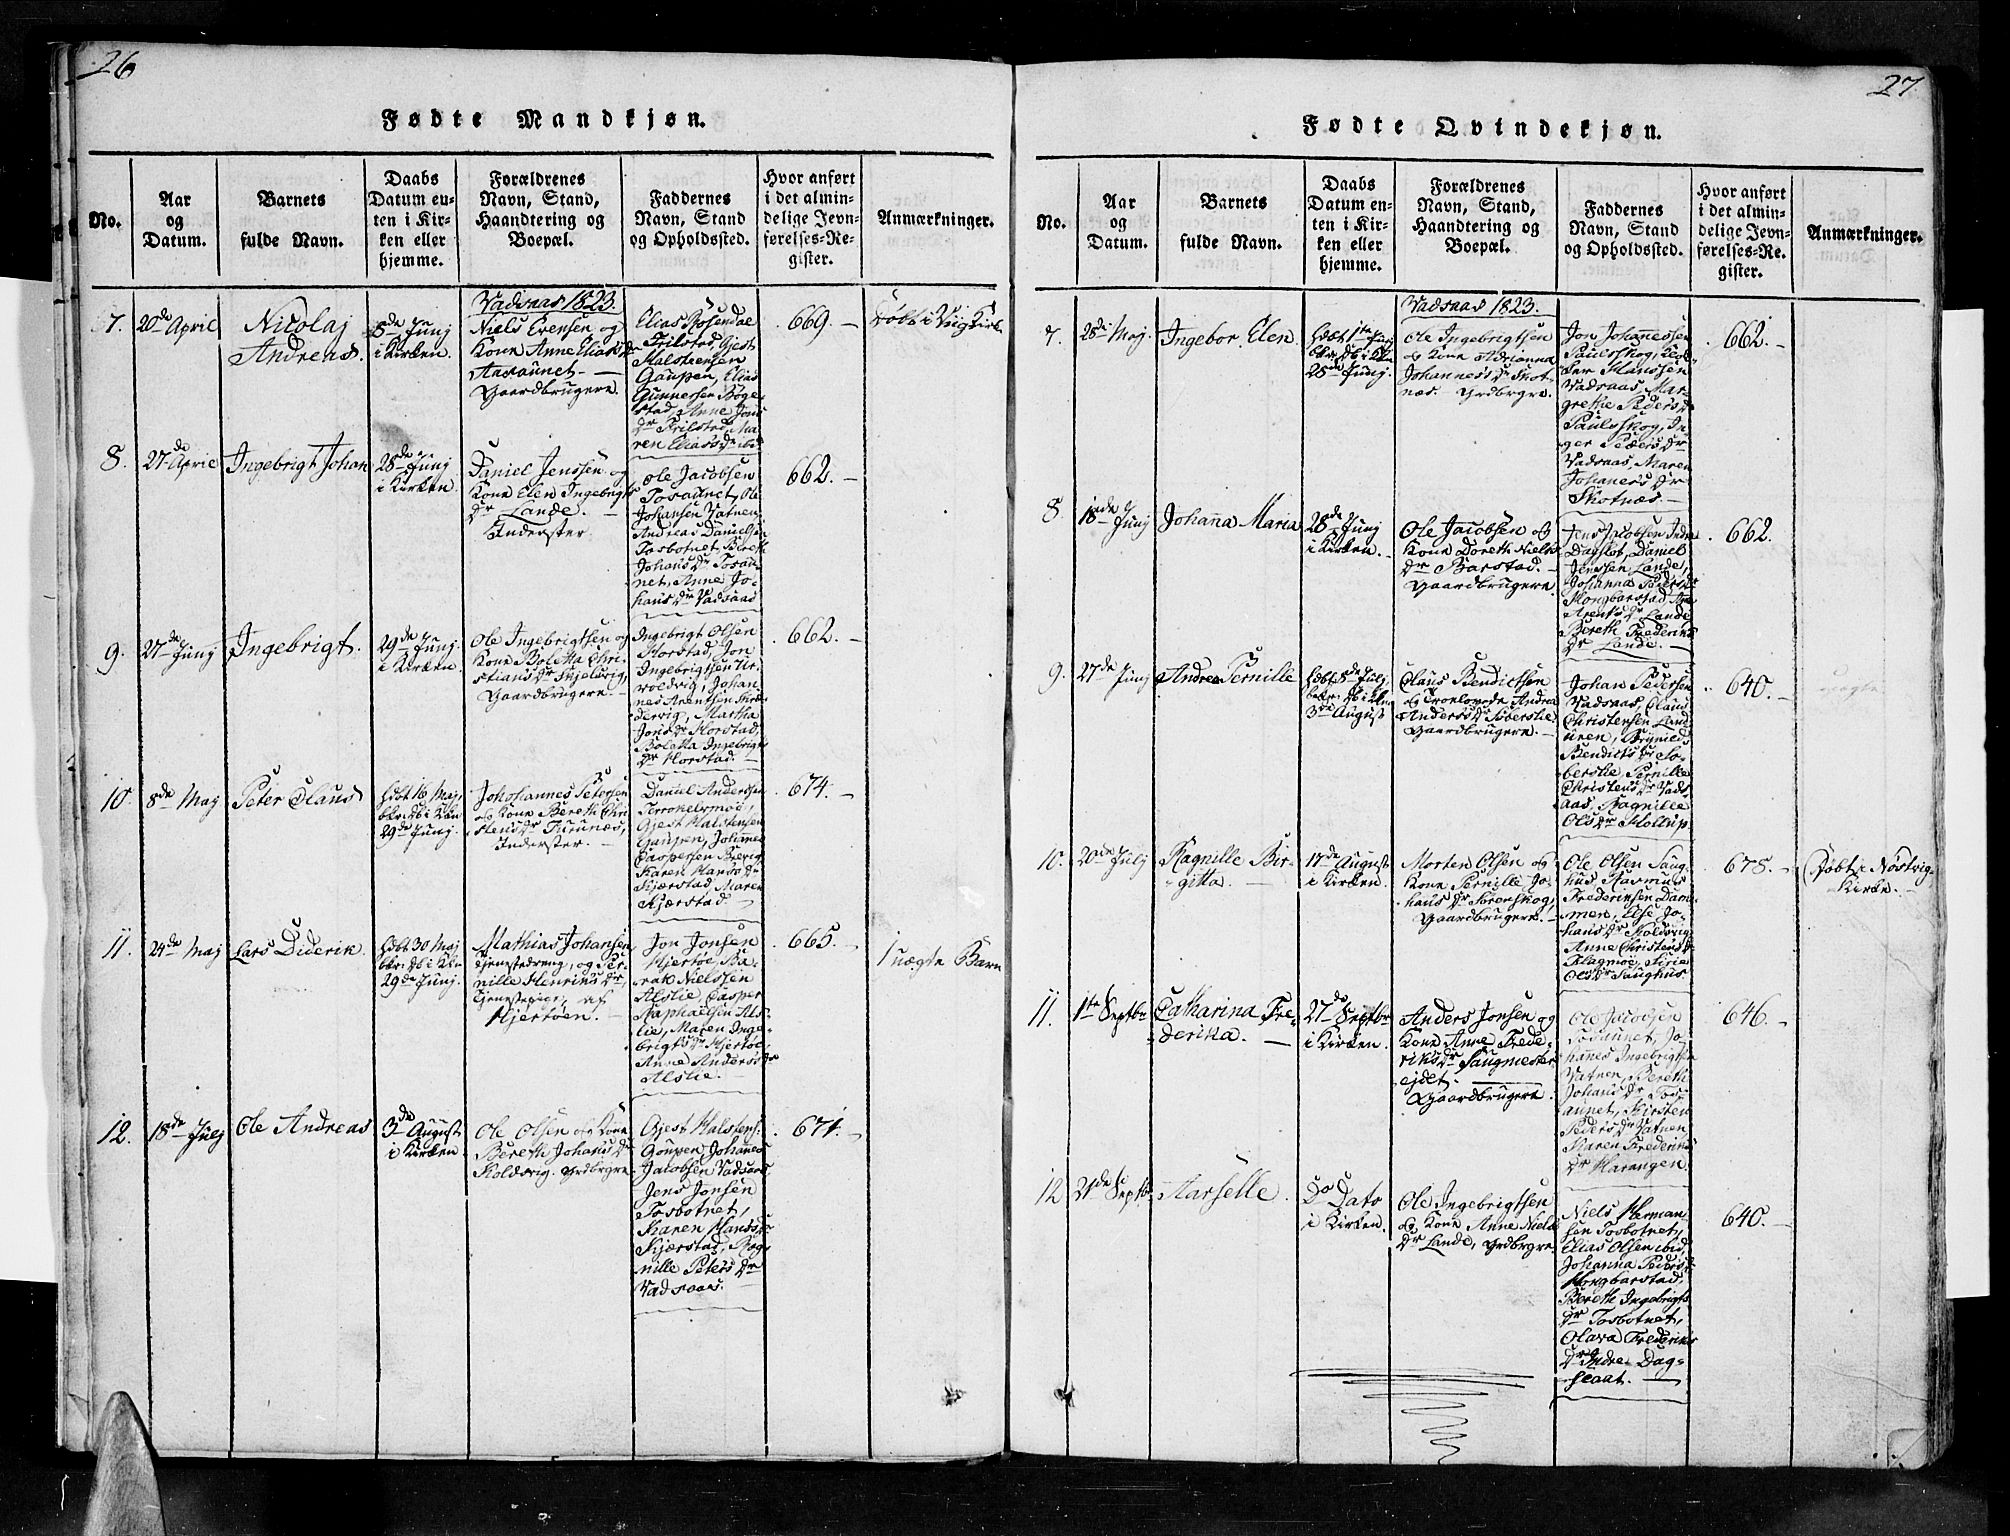 26
Fødte Mandkjøn.
No.
Aar
og
Datum.
Barnets
fulde Navn.
Daabs
Datum en-
ten i Kir-
ken eller
hjemme.
Forældrenes
Navn, Stand,
Haandtering og
Boepæl.
Faddernes
Navn, Stand
og Opholdssted.
Hvor anført
i det almin-
delige Jevn-
førelses-Re-
gister.
Anmærkninger.
Vadsaas 1823.
7.
20de April
Nicolaj
Andreas.
8de Junj
i Kirken.
Niels Evensen og
Kone Anne Elias Dr
Aasaunet
Gaardbrugere.
Elias Rosendal
Trilstad, Gjest
Halstensen
Gaupen, Elias
Gunnersen Bøge-
stad, Anne Jons
Dr Trilstad, Ma-
ren Elias Dr ibd
669.
Døbt i Viig Kirke
8.
27de April
Ingebrigt Johan
28de Junj
i Kirken.
Daniel Jenssen og
Kone Elen Ingebrigts
Dr Lande.
Inderster.
Ole Jacobsen
Tosaunet, Ole
Johansen Vatnen
Andreas Danielsen
Tosbotnet, Bereth
Johans Dr Tosau-
net, Anne Jo-
hans Dr Vadsaas
662.
9.
27de Junj
Ingebrigt.
29de Junj
i Kirken.
Ole Ingebrigtsen og
Kone Boletta Chri-
stians Dr Skjelsvig,
Gaardbrugere
Ingebrigt Olsen
Horstad, Jon
Ingebrigtsen Ur-
voldvig, Johan-
nes Arentsen
dervig, Martha
Jons Dr Horstad,
Boletta Ingebrigts
Dr Horstad.
662.
10.
8de Maj
Peter Claus
hdbt 16 Maj
bkr. Db i Kkn
29de Junj.
Johohannes Petersen
og Kone Bereth Chri-
stens Dr Furunæs,
Inderster.
Daniel Andersen
Terrokelsmoe,
Gjest Halstensen
Gaupen, Johannes
Caspersen Brevig
Karen Hans Dr
Kjærstad, Maren
Kjærstad
674.
11.
24de Maj
Lars Diderik
hdbt 30 Maj
bkr. Db i Kkn
29de Junj.
Mathias Johansen
Tjenestedreng, og Per-
nille Henriks Dr,
Tjenestepige, af
Hjertøen.
Jon Jonsen
Hjertøe, Ba-
rak Nielssen
Alslie, Casper
Raphaelsen Als-
lie, Maren Inge-
brigts Dr Hjertøe
Anne Anders Dr
Alslie.
665.
1 uægte Barn
12.
18de Julj
Ole Andreas
3de August
i Kirken
Ole Olsen og Kone
Bereth Johans Dr
Koldsvig. Grdbrgre
Gjest Halstens.
Goupen, Johannes
Jacobsen Vadsaas
Jens Jonsen
Tosbotnet,
Karen Hans Dr
Kjærstad, Rag-
nille Peters Dr
Vadsaas.
671.
27
Fødte Qvindekjøn.
No.
Aar
og
Datum.
Barnets
fulde Navn.
Daabs
Datum en-
ten i Kir-
ken eller
hjemme.
Forældrenes
Navn, Stand,
Haandtering og
Boepæl.
Faddernes
Navn, Stand
og Opholdssted.
Hvor anført
i det almin-
delige Jevn-
førelses-Re-
gister.
Anmærkninger.
Vadsaas 1823.
7.
28de Maj.
Ingebor Elen
hdbt 1te Junj
bkr. Db i Kkn
28de Junj.
Ole Ingebrigtsen
og Kone Adrianna
Johannes Dr Skot-
næs. Grdbrgre.
Jon Johannessen
Paulsskog, Pe-
der Hanssen
Vadsaas, Mar-
grethe Peders Dr
Paulsskog, In-
ger Peders Dr
Vadsaas, Maren
Johannes Dr
Skotnæs
662.
8.
18de Junj
Johanna Maria
28de Junj
i Kirken.
Ole Jacobsen og
Kone Doreth Niels
Dr Barstad.
Gaardbrugere.
Jens Jacobsen Indre
Dagslot, Daniel
Jenssen Lande,
Johanna Peders Dr
Hongbarstad, Ane
Arents Dr Lande
Bereth Frederiks
Dr Lande.
662.
9.
27de Junj
Andrea Pernille
hdbt 8de Julj
bekr. Db i Kkn
3de August
Claus Bendictsen
og Troelovede Andrea
Anders Dr Soberslie
Gaardbrugere.
Johan Pedersen
Vadsaas, Claus
Christensen Land-
unen, Brynild
Bendicts Dr So-
berslie, Pernille
Christens Dr Vads-
aas, Ragnille
Ols Dr Mollup.
640.
10.
20de Julj
Ragnille Bir-
gitta.
17de August
i Kirken.
Morten Olsen og
Kone Pernille Jo-
hans Dr Sørenskog,
Gaardbrugere.
Ole Olsen Saug-
hus, Rasmus
Frederiksen Dam-
men, Else Jo-
hans Dr Koldsvig
Anne Christens Dr
Klagmoe, Sirie
Ols Dr Saughus.
678.
Døbt i Nøstvig
Kirke.
11.
1te Septbr
Catharina Fre-
derika.
27de Septbr
i Kirken.
Anders Jonsen og
Kone Anne Frede-
riks Dr Saugmester
ejdet.
Gaardbrugere.
Ole Jacobsen
Tosaunet, Jo-
hannes Ingebrigtsen
Vatnen, Bereth
Johans Dr Tos-
aunet, Kirsten
Peders Dr Vatnen
Karen Frederiks
Dr Harangen.
646.
12
21de Septbr
Aarselle.
Do Dato
i Kirken.
Ole Ingebrigtsen
og Kone Anne Niels
Dr Lande, Grdbrgre
Niels Herman-
sen Tosbotnet,
Elias Olsen ibid,
Johanna Peders
Hongbarstad,
Bereth Ingebrigts
Dr Tosbotnet,
Olava Frederiks
Dr Indre Dag-
slaat.
640.